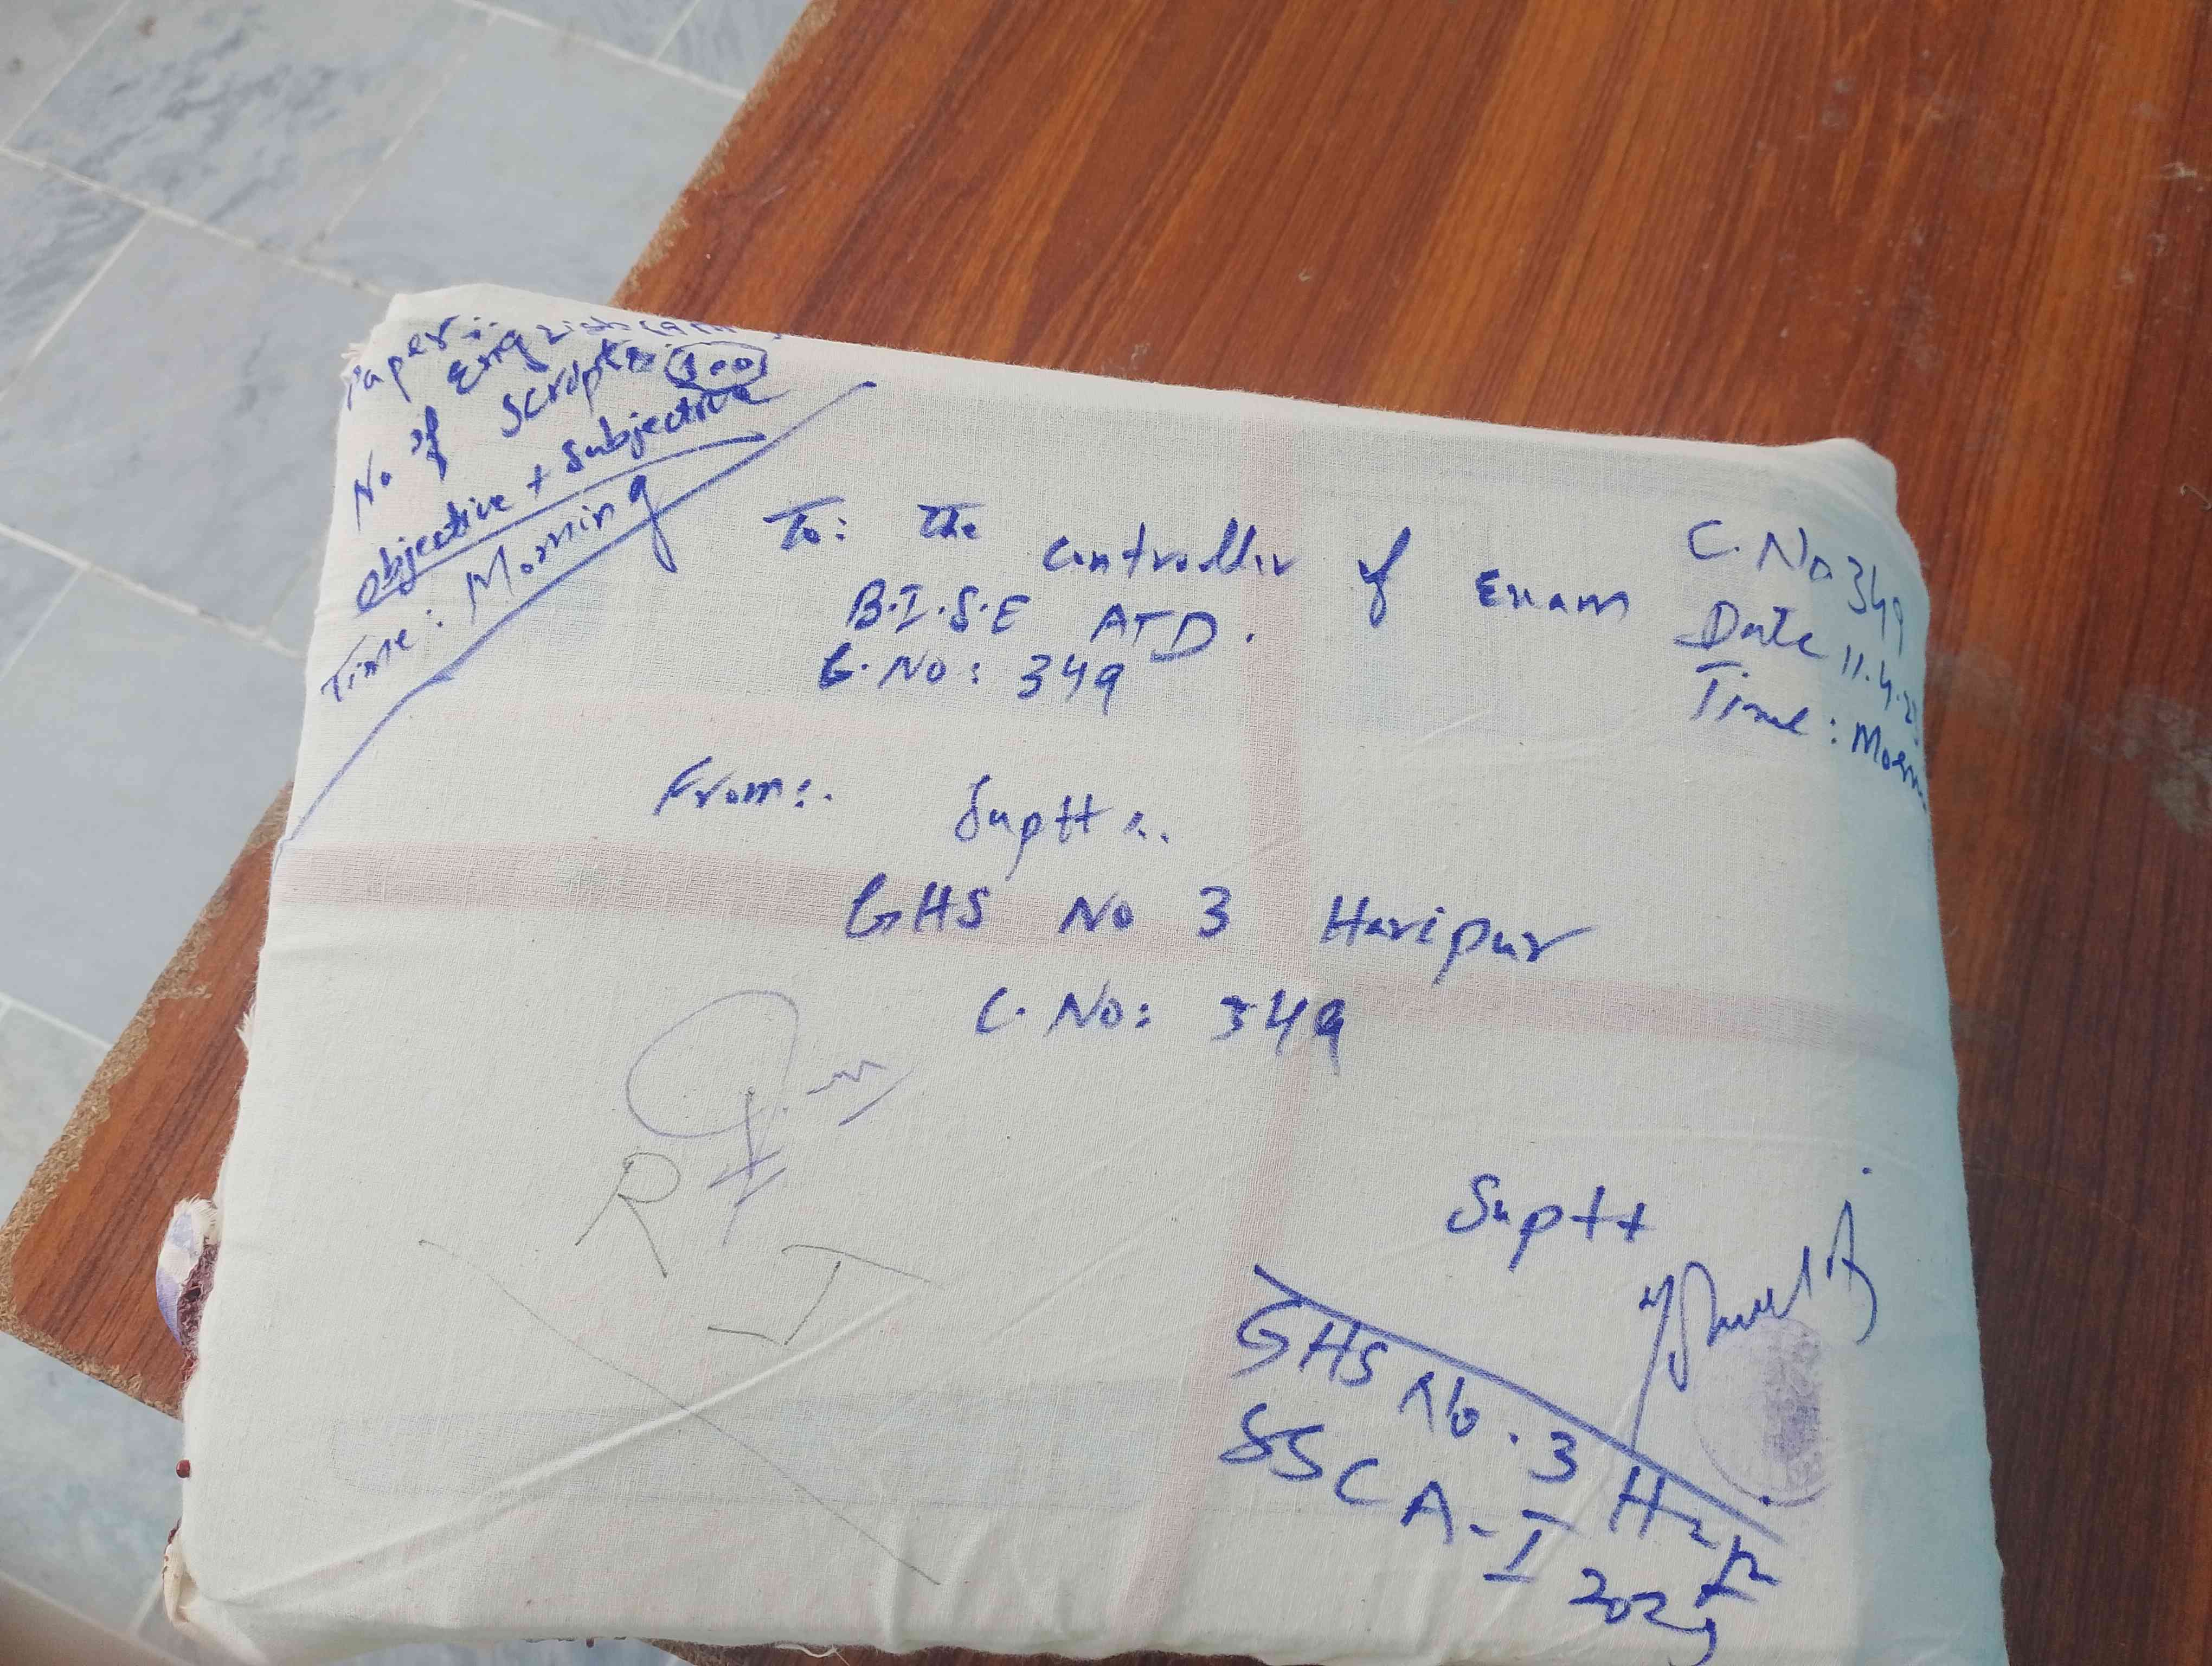 Paper:
English
No of Scripts 100
objective + Subjective
Time: Morning
To: The Controller of Exam
B.I.S.E ATD.
C.No: 349
C.No 349
Date 11.4.25
Time: Morn
From:.
Suptt:.
GHS No 3 Haripur
C.No: 349
R
I
Suptt
GHS No. 3
SSC A-I 2025